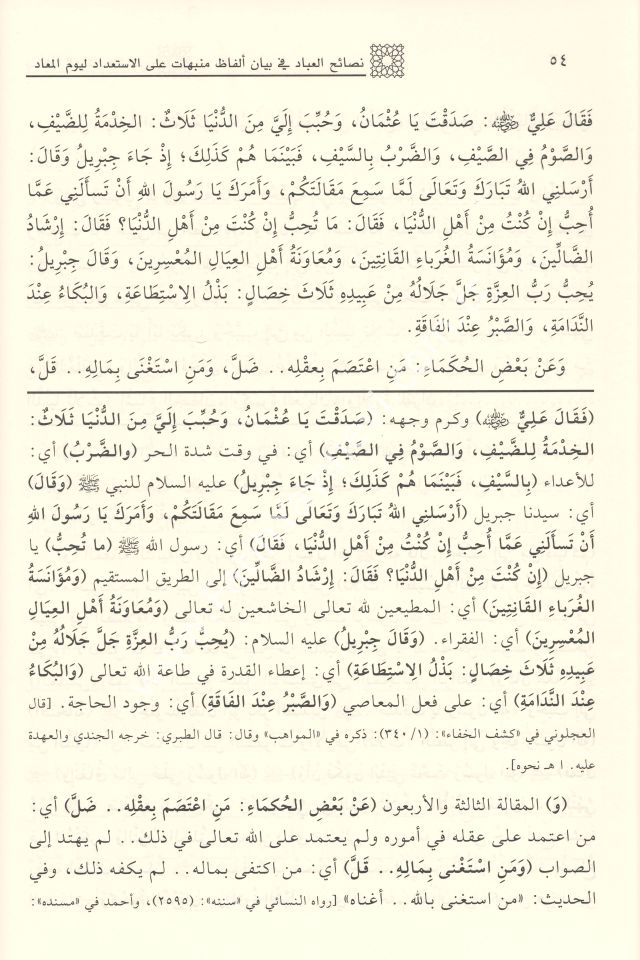 نصائح العباد في بيان ألفاظ منبهات على الاستعداد ليوم المعاد ٥٤
فَقَالَ عَلِيٌّ رضي الله عنه: صَدَقْتَ يَا عُثْمَانُ، وَحُبِّبَ إِلَيَّ مِنَ الدُّنْيَا ثَلَاثٌ: الخِدْمَةُ لِلضَّيْفِ،
وَالصَّوْمُ فِي الصَّيْفِ، وَالضَّرْبُ بِالسَّيْفِ، فَبَيْنَمَا هُمْ كَذَلِكَ؛ إِذْ جَاءَ جِبْرِيلُ وَقَالَ:
أَرْسَلَنِي اللهُ تَبَارَكَ وَتَعَالَى لَمَّا سَمِعَ مَقَالَتَكُمْ، وَأَمَرَكَ يَا رَسُولَ اللهِ أَنْ تَسأَلَنِي عَمَّا
أُحِبُّ إِنْ كُنْتُ مِنْ أَهْلِ الدُّنْيَا، فَقَالَ: مَا تُحِبُّ إِنْ كُنْتَ مِنْ أَهْلِ الدُّنْيَا؟ فَقَالَ: إِرْشَادُ
الضَّالِّينَ، وَمُؤَانَسَةُ الغُرَبَاءِ القَانِتِينَ، وَمُعَاوَنَةُ أَهْلِ العِيَالِ المُعْسِرِينَ، وَقَالَ جِبْرِيلُ:
يُحِبُّ رَبُّ العِزَّةِ جَلَّ جَلَالُهُ مِنْ عَبِيدِهِ ثَلَاثَ خِصَالٍ: بَذْلُ الِاسْتِطَاعَةِ، وَالبُكَاءُ عِنْدَ
النَّدَامَةِ، وَالصَّبْرُ عِنْدَ الفَاقَةِ.
وَعَنْ بَعْضِ الحُكَمَاءِ: مَنِ اعْتَصَمَ بِعقْلِهِ.. ضَلَّ، وَمَنِ اسْتَغْنَى بِمَالِهِ.. قَلَّ،
(فَقَالَ عَلِيٌّ رضي الله عنه) وكرم وجهه: (صَدَقْتَ يَا عُثْمَانُ، وَحُبِّبَ إِلَيَّ مِنَ الدُّنْيَا ثَلَاثٌ:
الخِدْمَةُ لِلضَّيْفِ، وَالصَّوْمُ فِي الصَّيْفِ) أي: في وقت شدة الحر (والضَّرْبُ) أي:
للأعداء (بِالسَّيْفِ، فَبَيْنَمَا هُمْ كَذَلِكَ؛ إِذْ جَاءَ جِبْرِيلُ) عليه السلام للنبي ﷺ (وَقَالَ)
أي: سيدنا جبريل (أَرْسَلَنِي اللهُ تَبَارَكَ وَتَعَالَى لَمَّا سَمِعَ مَقَالَتَكُمْ، وَأَمَرَكَ يَا رَسُولَ اللهِ
أَنْ تَسأَلَنِي عَمَّا أُحِبُّ إِنْ كُنْتُ مِنْ أَهْلِ الدُّنْيَا، فَقَالَ) أي: رسول الله ﷺ (ما تُحِبُّ) يا
جبريل (إِنْ كُنْتَ مِنْ أَهْلِ الدُّنْيَا؟ فَقَالَ: إِرْشَادُ الضَّالِّينَ) إلى الطريق المستقيم (وَمُؤَانَسَةُ
الغُرَبَاءِ القَانِتِينَ) أي: المطيعين لله تعالى الخاشعين له تعالى (وَمُعَاوَنَةُ أَهْلِ العِيَالِ
المُعْسِرِينَ) أي: الفقراء. (وَقَالَ جِبْرِيلُ) عليه السلام: (يُحِبُّ رَبُّ العِزَّةِ جَلَّ جَلَالُهُ مِنْ
عَبِيدِهِ ثَلَاثَ خِصَالٍ: بَذْلُ الِاسْتِطَاعَةِ) أي: إعطاء القدرة في طاعة الله تعالى (وَالبُكَاءُ
عِنْدَ النَّدَامَةِ) أي: على فعل المعاصي (وَالصَّبْرُ عِنْدَ الفَاقَةِ) أي: وجود الحاجة. [قال
العجلوني في «كشف الخفاء»: (١/ ٣٤٠): ذكره في «المواهب» وقال: قال الطبري: خرجه الجندي والعهدة
عليه. ا هـ نحوه].
(وَ) المقالة الثالثة والأربعون (عَنْ بَعْضِ الحُكَمَاءِ: مَنِ اعْتَصَمَ بِعقْلِهِ.. ضَلَّ) أي:
من اعتمد على عقله في أموره ولم يعتمد على الله تعالى في ذلك.. لم يهتد إلى
الصواب (وَمَنِ اسْتَغْنَى بِمَالِهِ.. قَلَّ) أي: من اكتفى بماله.. لم يكفه ذلك، وفي
الحديث: «من استغنى بالله.. أغناه» [رواه النسائي في «سننه»: (٢٥٩٥)، وأحمد في «مسنده»: